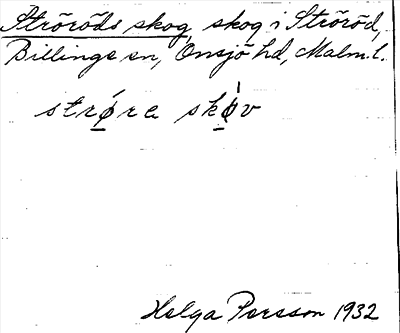 Ströröds skog, skog i Ströröd,
Billinge sn, Onsjö hd, Malm. l.
strǿ̱ra skǿ̱v
Helga Persson 1932